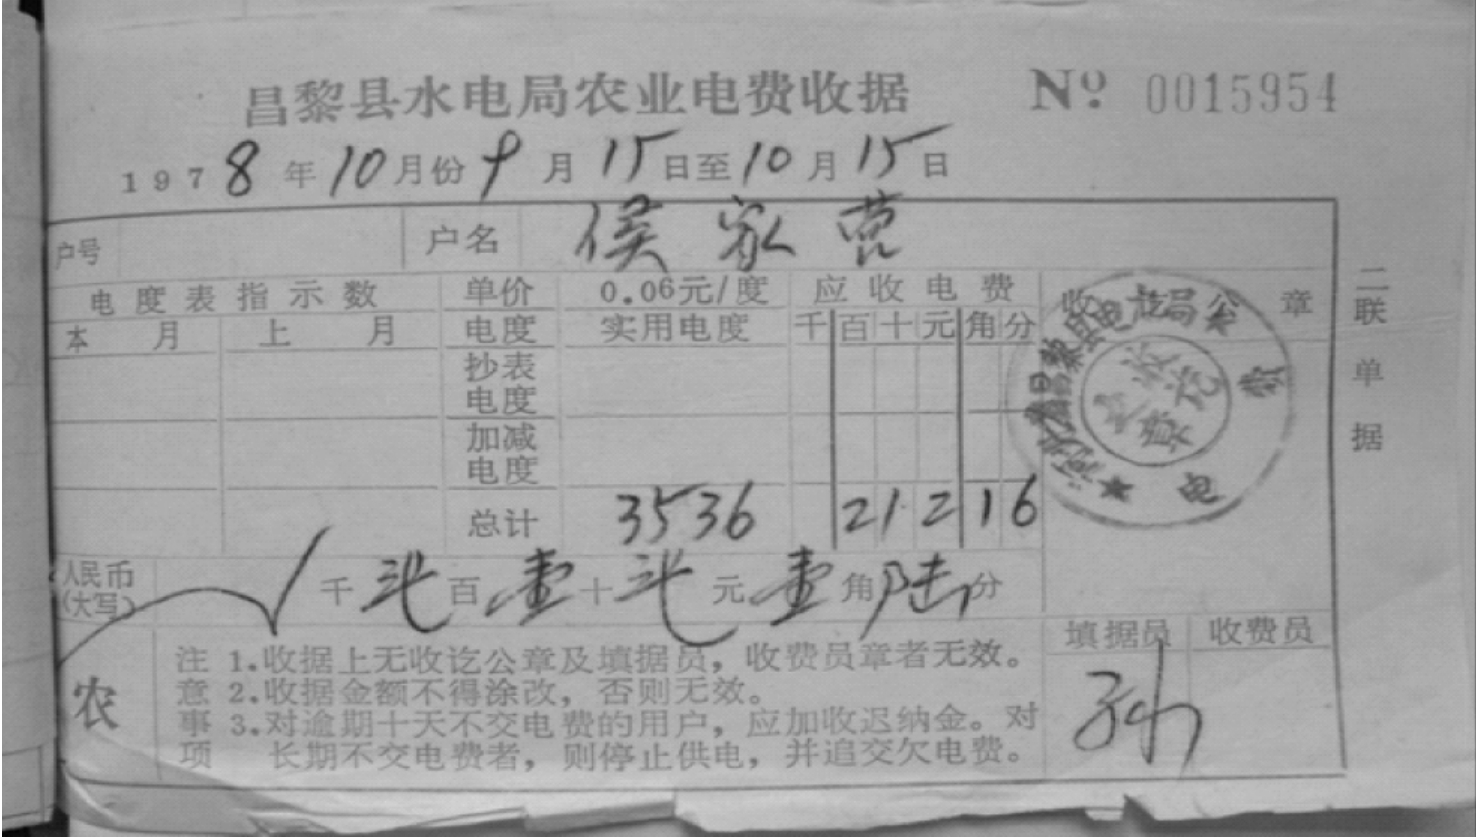 昌黎县水电局农业电费收据 Nº 0015954
1978年10月份9月15日至10月15日
户号 户名 侯家营
电度表指示数 单价 0.06元/度 应收电费 收 章
本月 上月 电度 实用电度 千百十元角分
抄表电度
加减电度
总计 3536 21216
人民币(大写) 千 弍 百 壹 十 弍 元 壹 角 陆 分
填据员 收费员
农
注意事项
1.收据上无收讫公章及填据员，收费员章者无效。
2.收据金额不得涂改，否则无效。
3.对逾期十天不交电费的用户，应加收迟纳金。对
长期不交电费者，则停止供电，并追交欠电费。
孙
二联单据